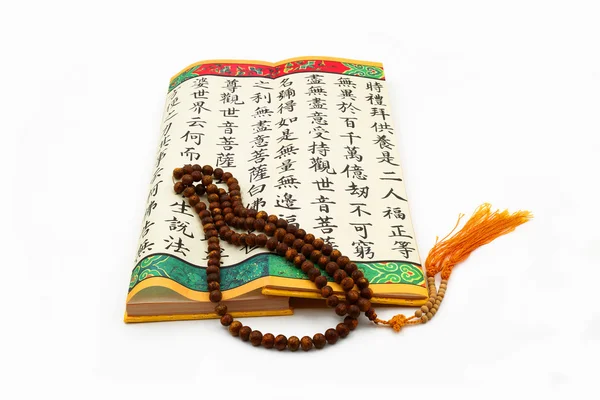 時禮拜供養是二人福正等
無異於百千萬億劫不可窮
盡無盡意受持觀世音菩
名號得如是無量無邊福
之利無盡意菩薩白佛
尊觀世音菩薩
婆世界云何而生說法